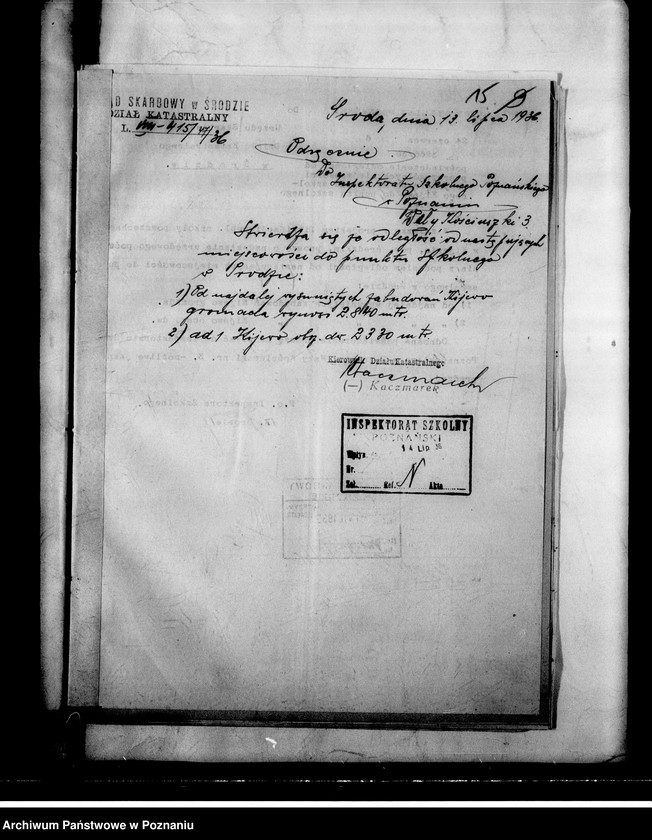 15
D SKARBOWY W ŚRODZIE
DZIAŁ KATASTRALNY
L. VIII-415/VI/36
Środa, dnia 13. lipca 1936
Odręcznie
Do
Inspektoratu Szkolnego Poznańskiego
w Poznaniu
Wały Kościuszki 3.
Stwierdza się że odległość od następujących
miejscowości do punktu szkolnego
w Środzie:
1) Od najdalej wysuniętych zabudowań Kijewo
gromada wynosi 2.840 mtr.
2) ad 1 Kijewo obsz. dw. 2330 mtr.
Kierownik Działu Katastralnego
Kaczmarek
(—) Kaczmarek
INSPEKTORAT SZKOLNY
POZNAŃSKI
14 LIP 36
Wpłyn.
Nr.
Zał. Ref. N Akta
Archiwum Państwowe w Poznaniu